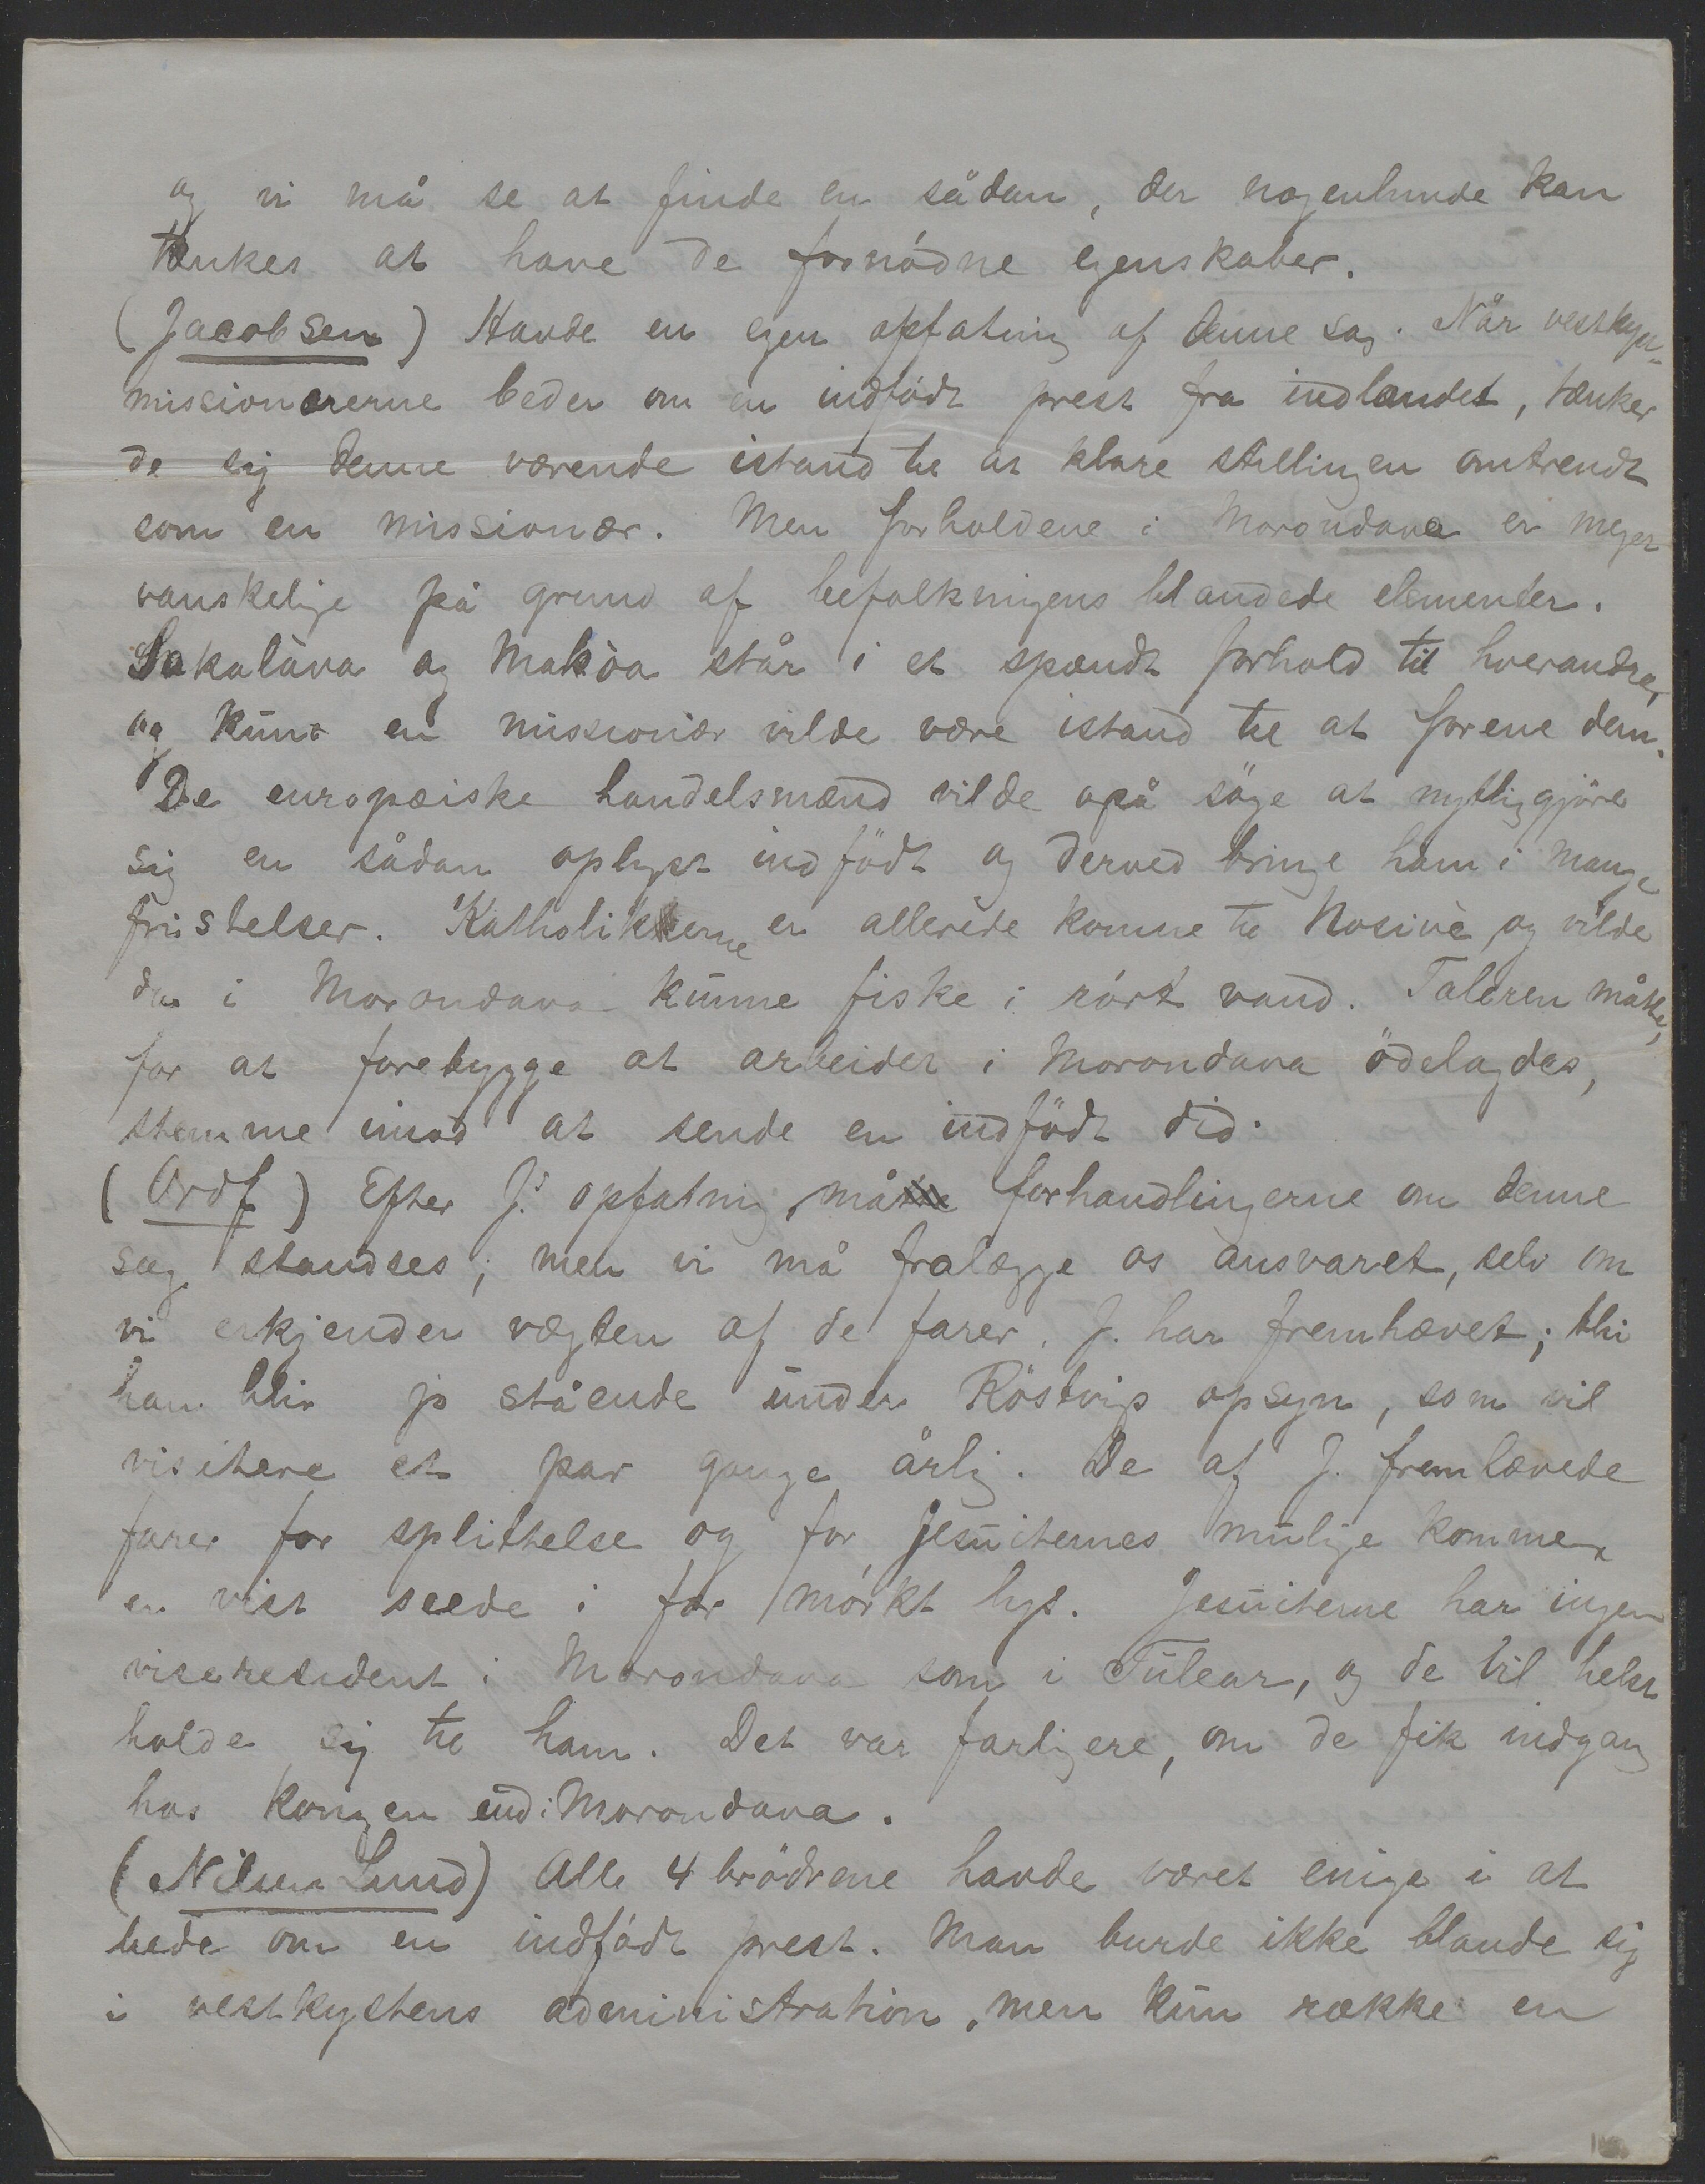 og vi må se at finde en sådan, der nogenlunde kan
tænkes at have de fornødne egenskaber.
(Jacobsen) Havde en egen opfatning af denne sag. Når vestkyst-
missionærerne beder om en indfødt prest fra indlandet, tænker
de sig denne værende istand til at klare stillingen omtrendt
som en missionær. Men forholdene i Morondava er meget
vanskelige på grund af befolkningens blandede elementer.
Sakalàva og Makòa står i et spændt forhold til hverandre,
og kun en missionær vilde være istand til at forene dem.
De europæiske handelsmænd vilde også söge at nyttiggjöre
sig en sådan oplyst indfödt og derved bringe ham i mange
fristelser. Katholikkerne er allerede komne til Nosivè og vilde
da i Morondava kunne fiske i rørt vand. Taleren måtte,
for at forebygge at arbeidet i Morondava ödelagdes,
stemme imod at sende en indfödt did.
(Ordf) Efter J.s opfatning må forhandlingerne om denne
sag standses; men vi må fralægge os ansvaret, selv om
vi erkjender vægten af de farer, J. har fremhævet; thi
han blir jo stående under Röstvigs opsyn, som vil
visitere et par gange årlig. De af J. fremhævede
farer for splittelse og for jesuiternes mulige komme,
er vist seede i for mørkt lys. Jesuiterne har ingen
viseresident i Morondava som i Tulear, og de vil helst
holde sig til ham. Det var farligere, om de fik indgang
hos kongen end i Morondava.
(Nilsen Lund) Alle 4 brödrene havde været enige i at
bede om en indfødt prest. Man burde ikke blande sig
i vestkystens administration, men kun række en